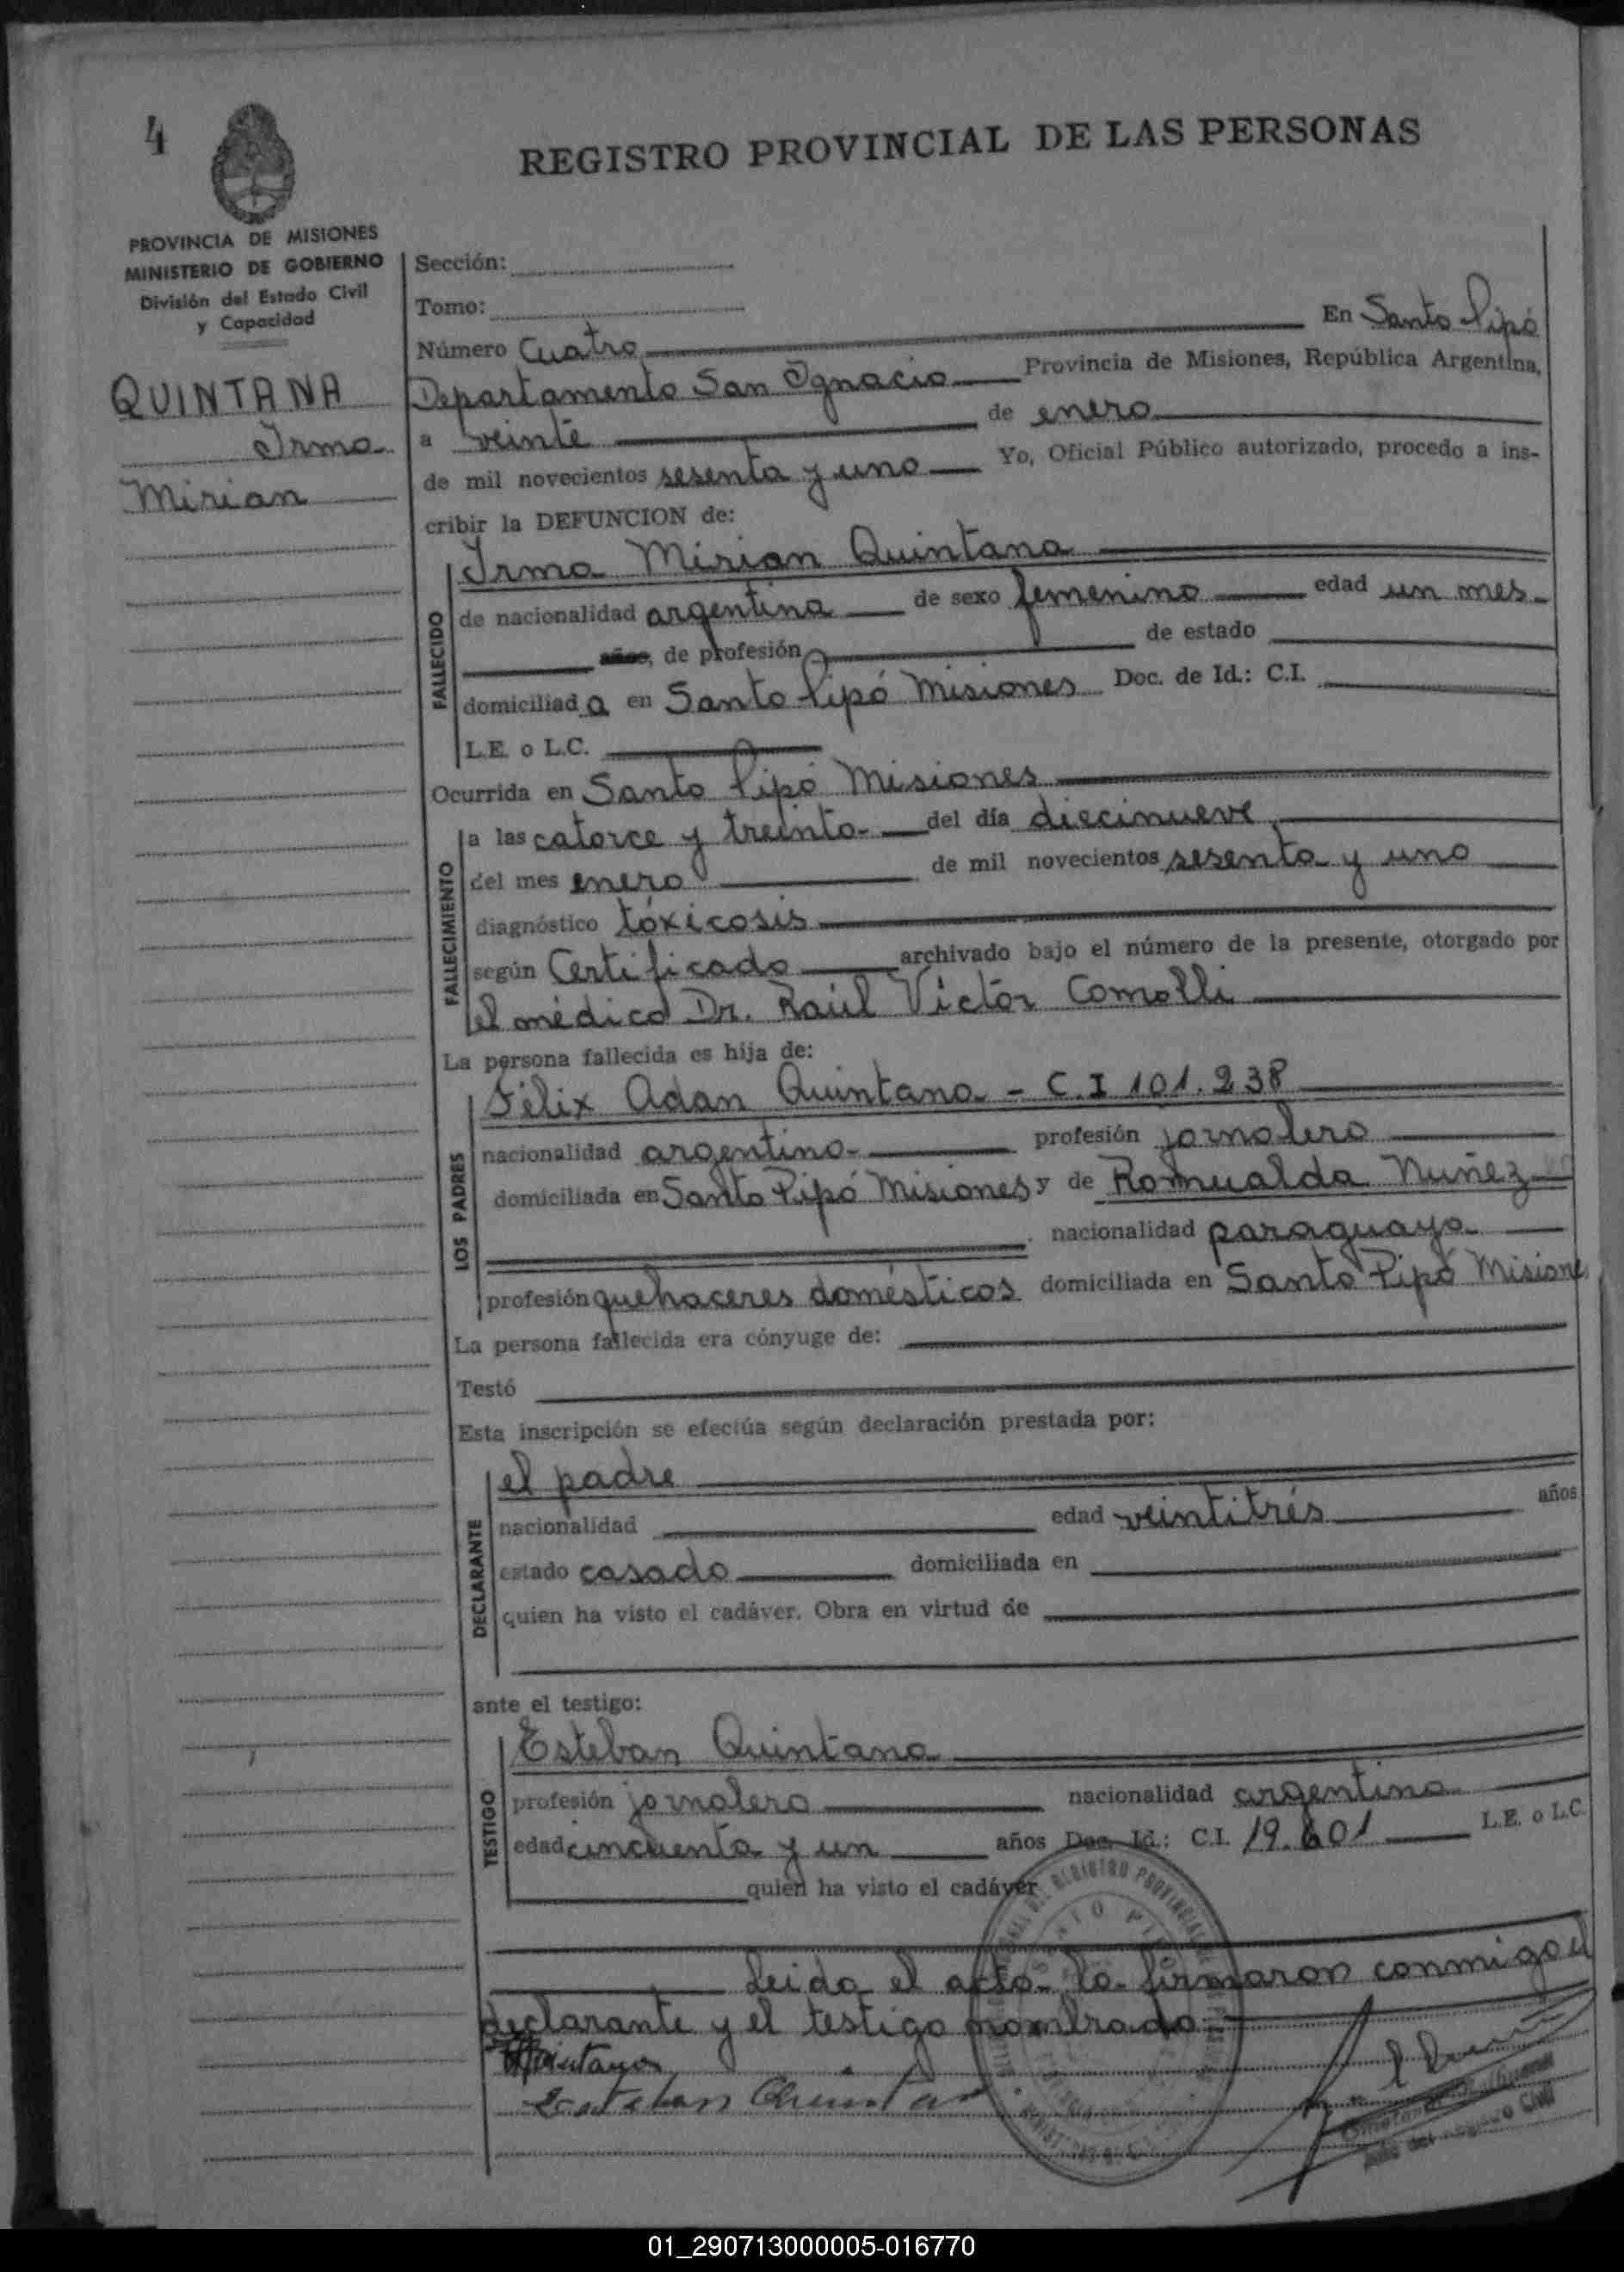 4
REGISTRO PROVINCIAL DE LAS PERSONAS
PROVINCIA DE MISIONES
MINISTERIO DE GOBIERNO
División del Estado Civil
y Capacidad
QUINTANA
Irma
Mirian
Sección:
Tomo:
Número Cuatro En Santo Pipó
Departamento San Ignacio Provincia de Misiones, República Argentina,
a veinte de enero
de mil novecientos sesenta y uno Yo, Oficial Público autorizado, procedo a ins-
cribir la DEFUNCION de:
FALLECIDO
Irma Mirian Quintana
de nacionalidad argentina de sexo femenino edad un mes
años, de profesión de estado
domiciliada en Santo Pipó Misiones Doc. de Id.: C.I.
L.E. o L.C.
Ocurrida en Santo Pipó Misiones
FALLECIMIENTO
a las catorce y treinta del día diecinueve
del mes enero de mil novecientos sesenta y uno
diagnóstico tóxicosis
según Certificado archivado bajo el número de la presente, otorgado por
el médico Dr. Raúl Victor Comolli
La persona fallecida es hija de:
LOS PADRES
Félix Adan Quintana - C.I 101.238
nacionalidad argentino profesión jornalero
domiciliada en Santo Pipó Misiones y de Romualda Nuñez
nacionalidad paraguaya
profesión quehaceres domésticos domiciliada en Santo Pipó Misiones
La persona fallecida era cónyuge de:
Testó
Esta inscripción se efectúa según declaración prestada por:
DECLARANTE
el padre
nacionalidad edad veintitrés años
estado casado domiciliada en
quien ha visto el cadáver. Obra en virtud de
ante el testigo:
TESTIGO
Esteban Quintana
profesión jornalero nacionalidad argentino
edad cincuenta y un años Doc. Id.: C.I. 19.601 L.E. o L.C.
quien ha visto el cadáver
Leida el acta la firmaron conmigo el
declarante y el testigo nombrado
Esteban Quintan
01_290713000005-016770